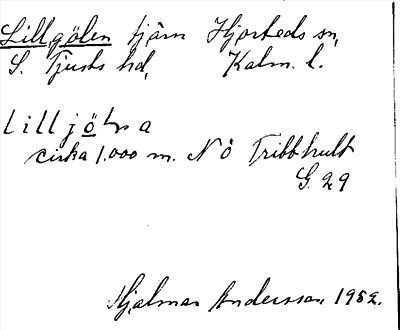 Lillgölen tjärn Hjorteds sn,
S. Tjusts hd, Kalm. l.
Lillj
cirka 1.000 m. NÖ Tribbhult
G. 29
Hjalmar Andersson 1952.